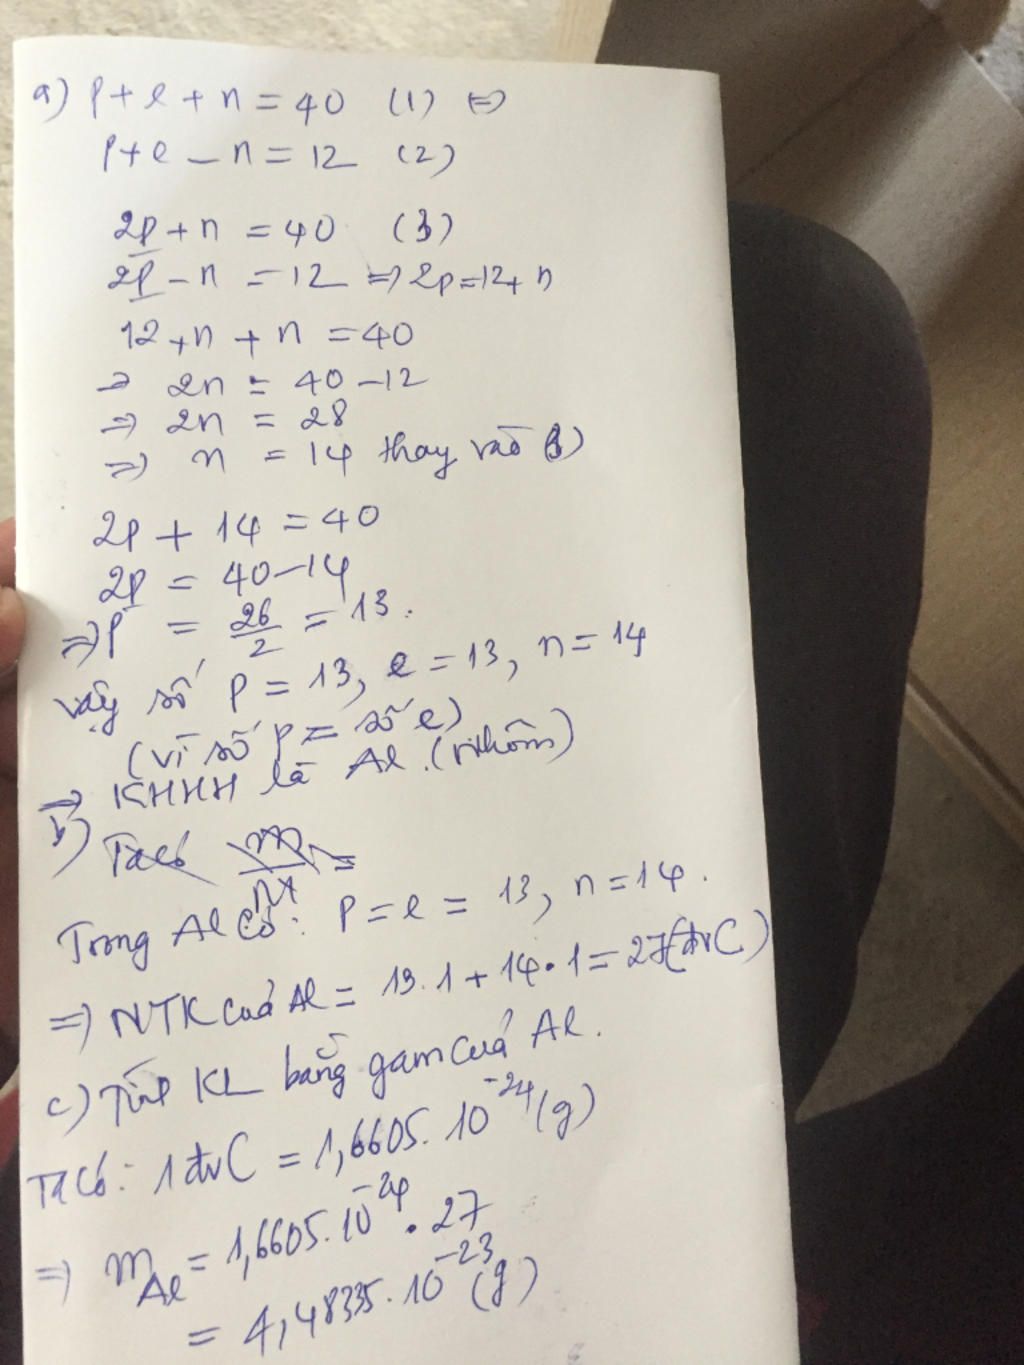 a) p + e + n = 40 (1) =>
p + e - n = 12 (2)
2p + n = 40 (3)
2p - n = 12 => 2p = 12 + n
12 + n + n = 40
=> 2n = 40 - 12
=> 2n = 28
=> n = 14 thay vào (3)
2p + 14 = 40
2p = 40 - 14
=> p = 26/2 = 13.
vậy số p = 13, e = 13, n = 14
(vì số p = số e)
=> KHHH là Al. (nhôm)
b) Ta có m/M =
Trong Al có: p = e = 13, n = 14.
=> NTK của Al = 13.1 + 14.1 = 27 (đvC)
c) Tính KL bằng gam của Al.
Ta có: 1 đvC = 1,6605.10⁻²⁴ (g)
=> mAl = 1,6605.10⁻²⁴ . 27
= 4,48335.10⁻²³ (g)